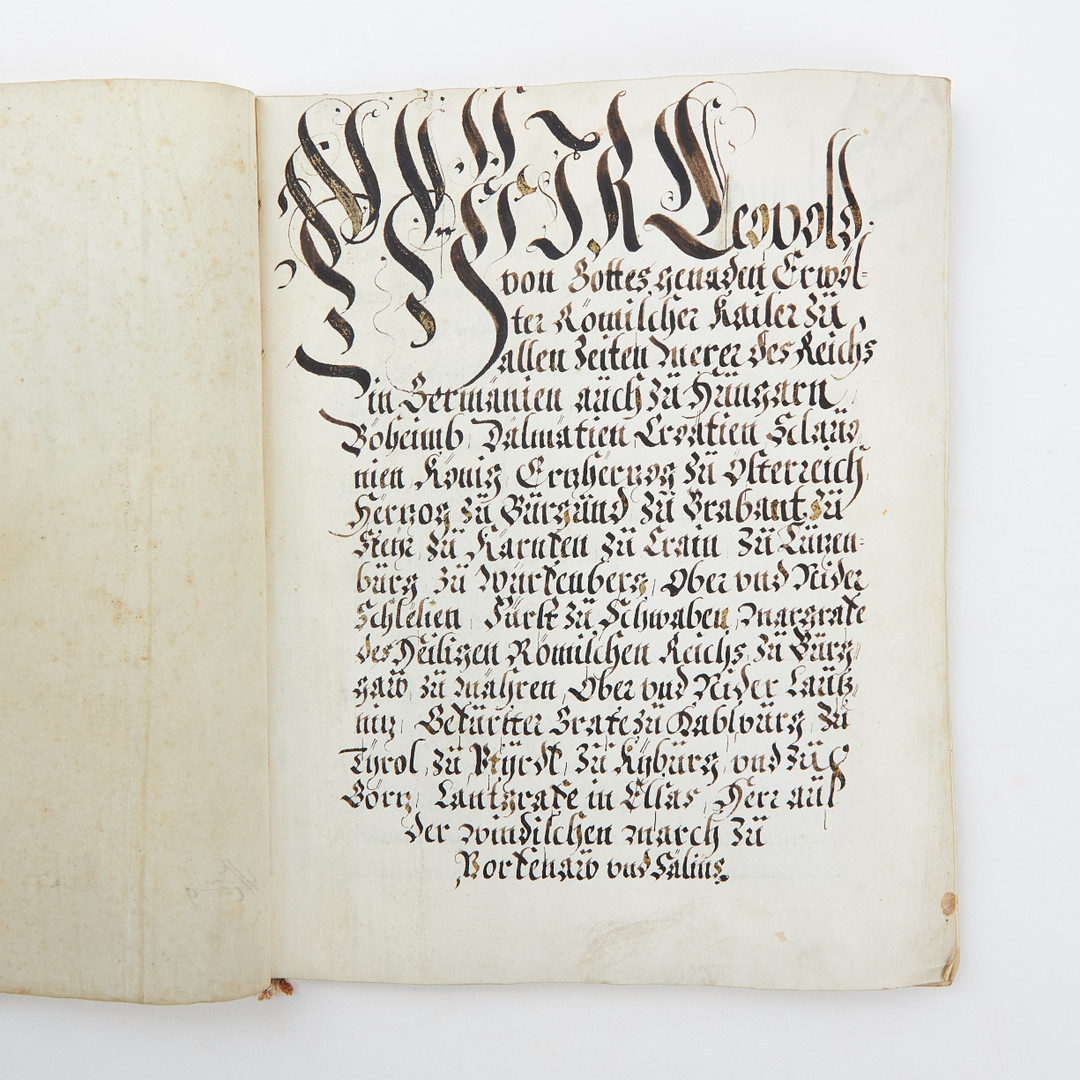 WIR Leopold
von Gottes genaden Erwöl-
ter Römischer Kaiser zü
allen Zeiten Merer des Reichs
in Germanien aüch zü Hüngarn
Böheimb Dalmatien Croatien Sclavo
nien König Ertzhertzog zü Österreich
Hertzog zü Bürgünd zü Brabant zü
Steyr zü Kärnten zü Crain zü Lützen-
bürg zü Würtenberg Ober und Nider
Schlesien Fürst zü Schwaben Margrafe
des Heiligen Römischen Reichs zü Bürg-
gaw zü Mähren Ober und Nider Laüß-
nitz Gefürster Grafe zü Habspürg zü
Tÿrol zü Pfÿrdt zü Kÿbürg und zü
Görtz Lantgrafe in Elsas Herr aüf
der Windischen March zü
Portenaw und Salins